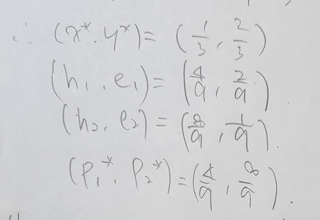 ∴ (x*. y*) = (1/3, 2/3)
(h₁, e₁) = (4/9, 2/9).
(h₂, e₂) = (8/9, 1/9).
(P₁*, P₂*) = (4/9, 8/9).